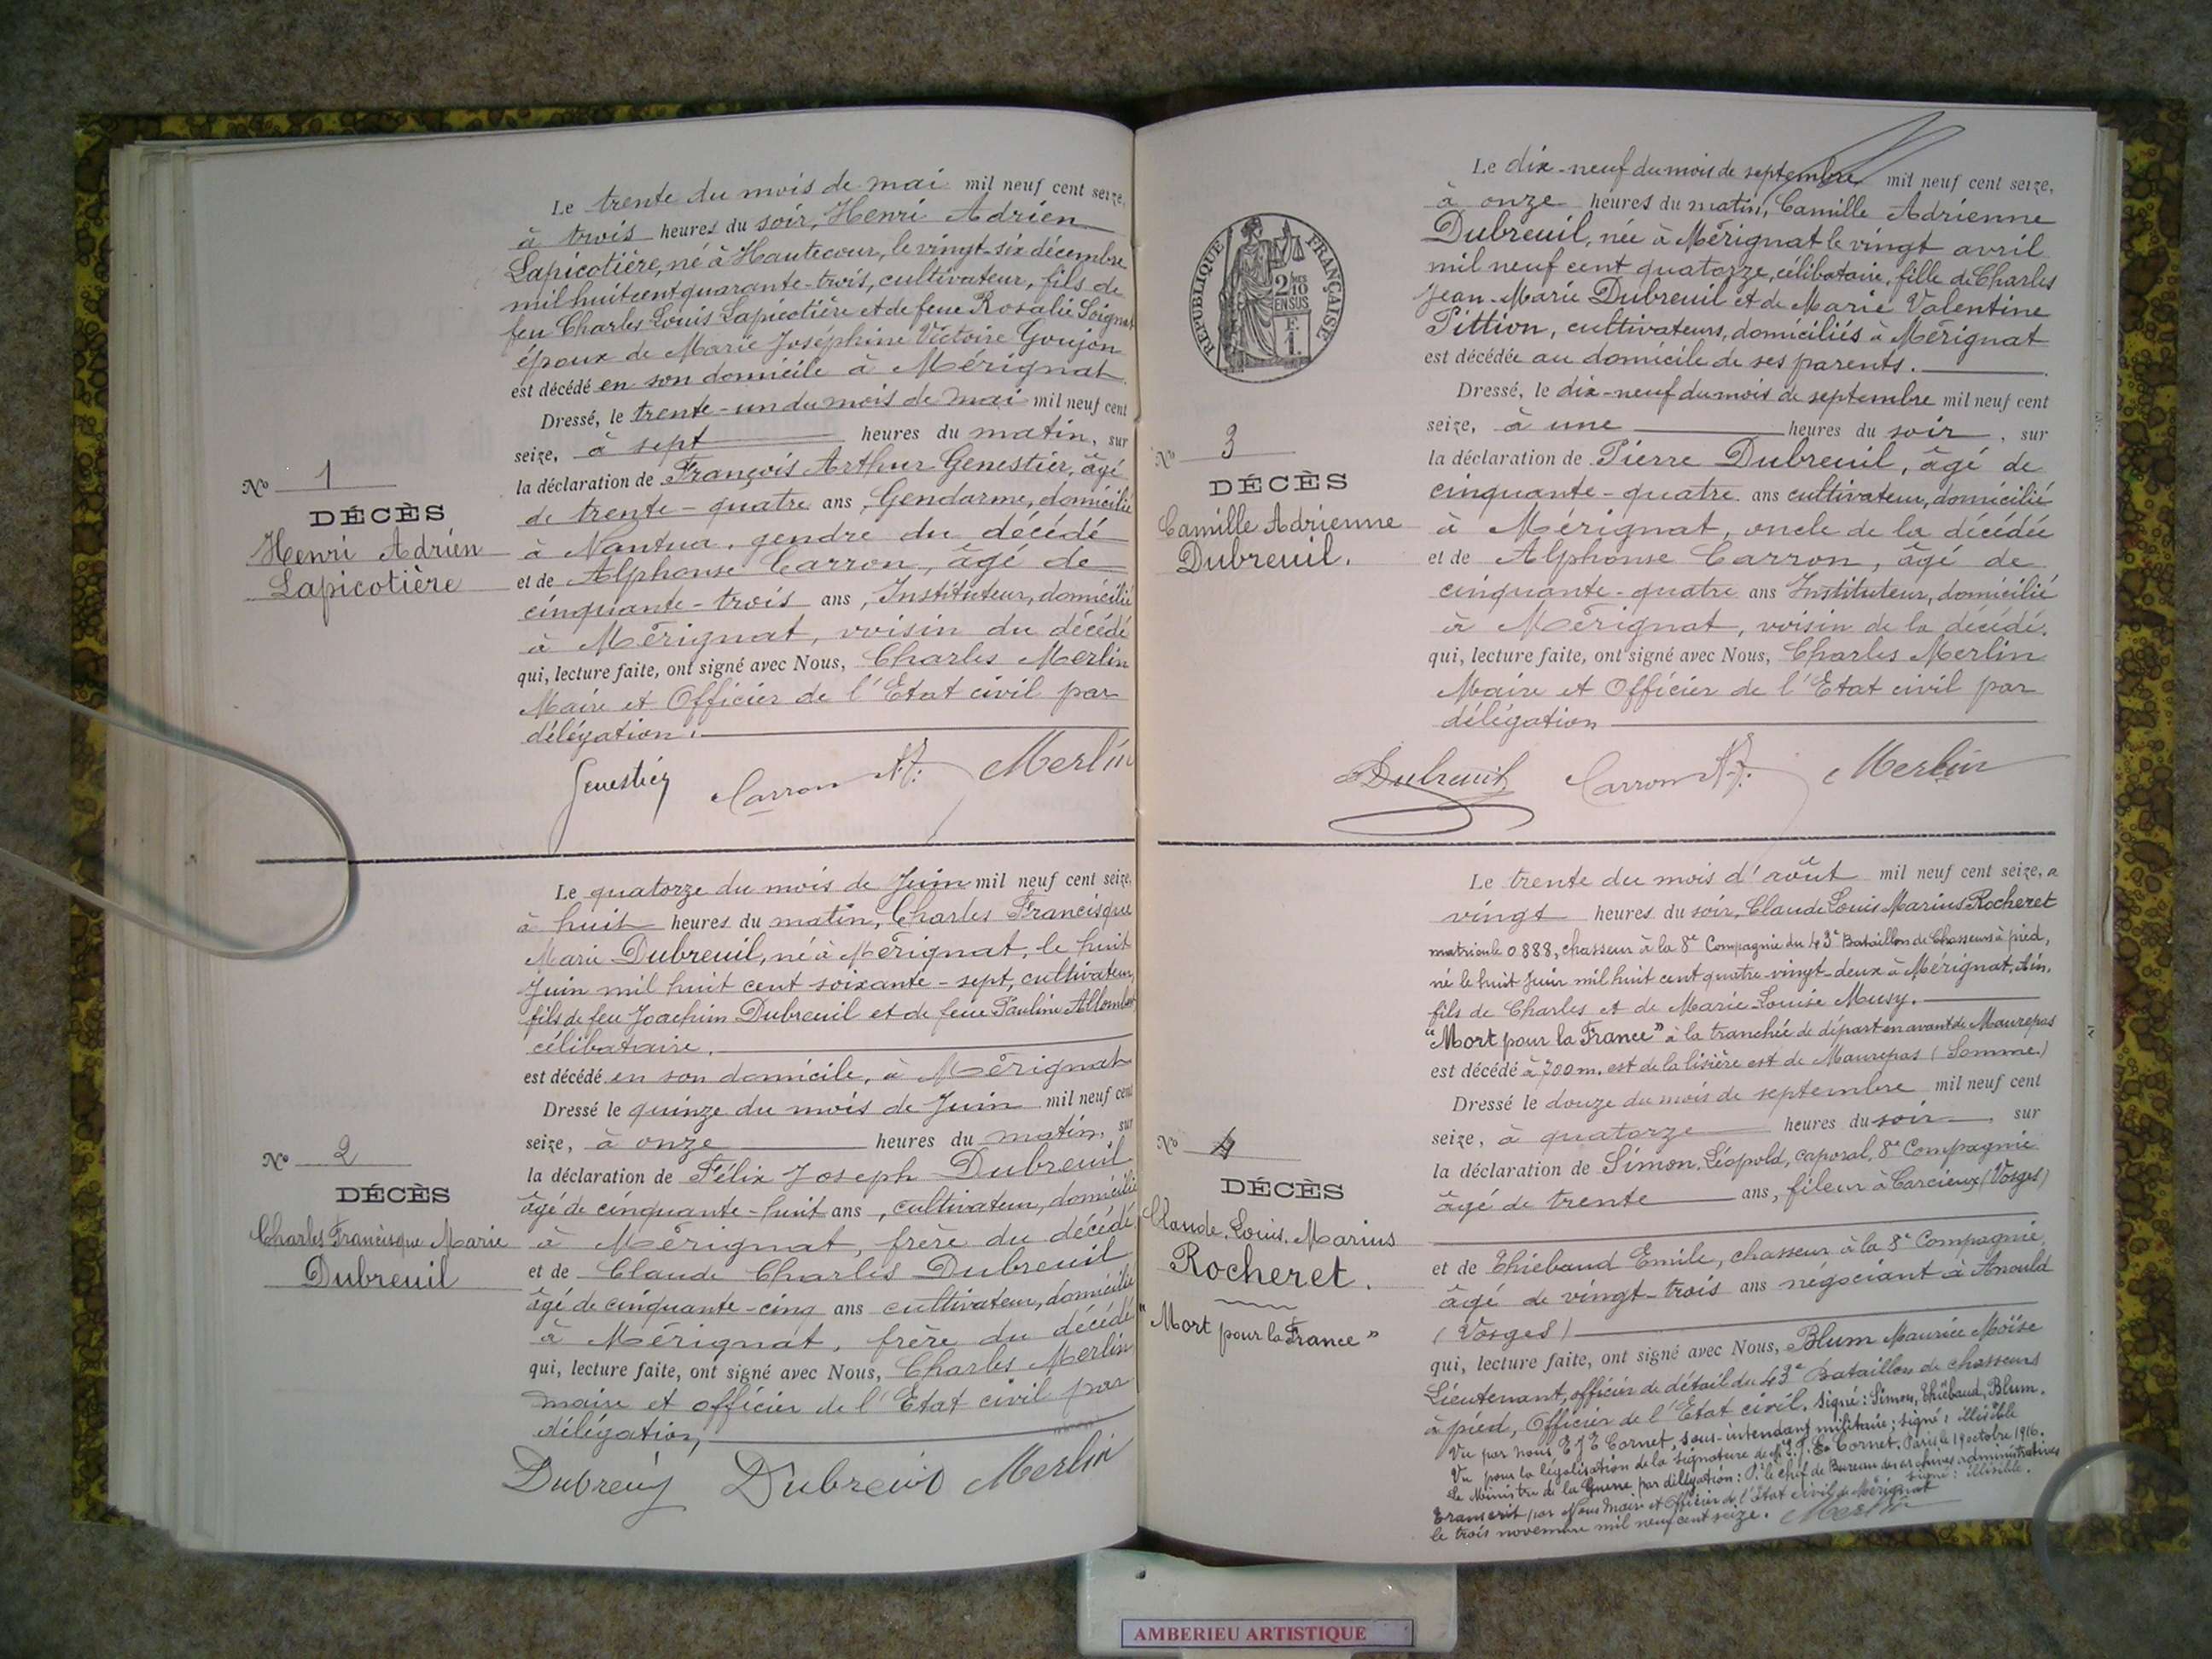 Le trente du mois de mai mil neuf cent seize,
à trois heures du soir, Henri Adrien
Lapicotière, né à Hautecour, le vingt-six décembre
mil huit cent quarante-trois, cultivateur, fils de
feu Charles Louis Lapicotière et de feue Rosalie
époux de Marie Joséphine Victoire Goujon
est décédé en son domicile à Mérignat
Dressé, le trente-un du mois de mai mil neuf cent
seize, à sept heures du matin, sur
la déclaration de François Arthur Genestier, âgé
de trente-quatre ans, Gendarme, domicilié
à Nantua, gendre du décédé
et de Alphonse Carron, âgé de
cinquante-trois ans, Instituteur, domicilié
à Mérignat, voisin du décédé
qui, lecture faite, ont signé avec Nous, Charles Merlin
Maire et Officier de l'Etat civil par
délégation.
Genestier Carron Merlin
N° 1
DÉCÈS
Henri Adrien
Lapicotière
Le quatorze du mois de Juin mil neuf cent seize,
à huit heures du matin, Charles Francisque
Marie Dubreuil, né à Mérignat, le huit
Juin mil huit cent soixante-sept, cultivateur,
fils de feu Joachim Dubreuil et de feue Pauline Allombert
célibataire.
est décédé en son domicile, à Mérignat
Dressé le quinze du mois de Juin mil neuf cent
seize, à onze heures du matin, sur
la déclaration de Félix Joseph Dubreuil
âgé de cinquante-huit ans, cultivateur, domicilié
à Mérignat, frère du décédé
et de Claude Charles Dubreuil
âgé de cinquante-cinq ans cultivateur, domicilié
à Mérignat, frère du décédé
qui, lecture faite, ont signé avec Nous, Charles Merlin
maire et officier de l'Etat civil par
délégation,
Dubreuil Dubreuil Merlin
N° 2
DÉCÈS
Charles Francisque Marie
Dubreuil
Le dix-neuf du mois de septembre mil neuf cent seize,
à onze heures du matin, Camille Adrienne
Dubreuil, née à Mérignat le vingt avril
mil neuf cent quatorze, célibataire, fille de Charles
Jean-Marie Dubreuil et de Marie Valentine
Pittion, cultivateurs, domiciliés à Mérignat
est décédée au domicile de ses parents.
Dressé, le dix-neuf du mois de septembre mil neuf cent
seize, à une heures du soir, sur
la déclaration de Pierre Dubreuil, âgé de
cinquante-quatre ans cultivateur, domicilié
à Mérignat, oncle de la décédée
et de Alphonse Carron, âgé de
cinquante-quatre ans Instituteur, domicilié
à Mérignat, voisin de la décédé.
qui, lecture faite, ont signé avec Nous, Charles Merlin
Maire et Officier de l'Etat civil par
délégation
Dubreuil Carron Merlin
RÉPUBLIQUE FRANÇAISE
2/10
EN SUS
F.
1.
N° 3
DÉCÈS
Camille Adrienne
Dubreuil.
Le trente du mois d'août mil neuf cent seize, a
vingt heures du soir, Claude Louis Marius Rocheret
matricule 0.888, chasseur à la 8e Compagnie du 43e Bataillon de Chasseurs à pied,
né le huit Juin mil huit cent quatre-vingt-deux à Mérignat, Ain,
fils de Charles et de Marie-Louise Musy.
"Mort pour la France" à la tranchée de départ en avant de Maurepas
est décédé à 700 m. est de la lisière est de Maurepas (Somme.)
Dressé le douze du mois de septembre mil neuf cent
seize, à quatorze heures du soir, sur
la déclaration de Simon, Léopold, caporal, 8e Compagnie
âgé de trente ans, fileur à Corcieux (Vosges)
et de Thiébaud Emile, chasseur à la 8e Compagnie,
âgé de vingt-trois ans négociant à Anould
(Vosges)
qui, lecture faite, ont signé avec Nous, Blum Maurice Moïse
Lieutenant, officier de détail du 43e Bataillon de chasseurs
à pied, Officier de l'Etat civil. Signé: Simon, Thiébaud, Blum.
Vu par nous E J E Cornet, sous-intendant militaire; signé: illisible
Vu pour la légalisation de la signature de Mr E. J. E. Cornet. Paris le 19 octobre 1916.
Le Ministre de la Guerre, par délégation: Pr le chef de Bureau des archives administratives
signé: illisible.
Transcrit par Nous Maire et Officier de l'Etat civil de Mérignat
le trois novembre mil neuf cent seize. Merlin
N° 4
DÉCÈS
Claude. Louis. Marius
Rocheret.
"Mort pour la France"
AMBERIEU ARTISTIQUE